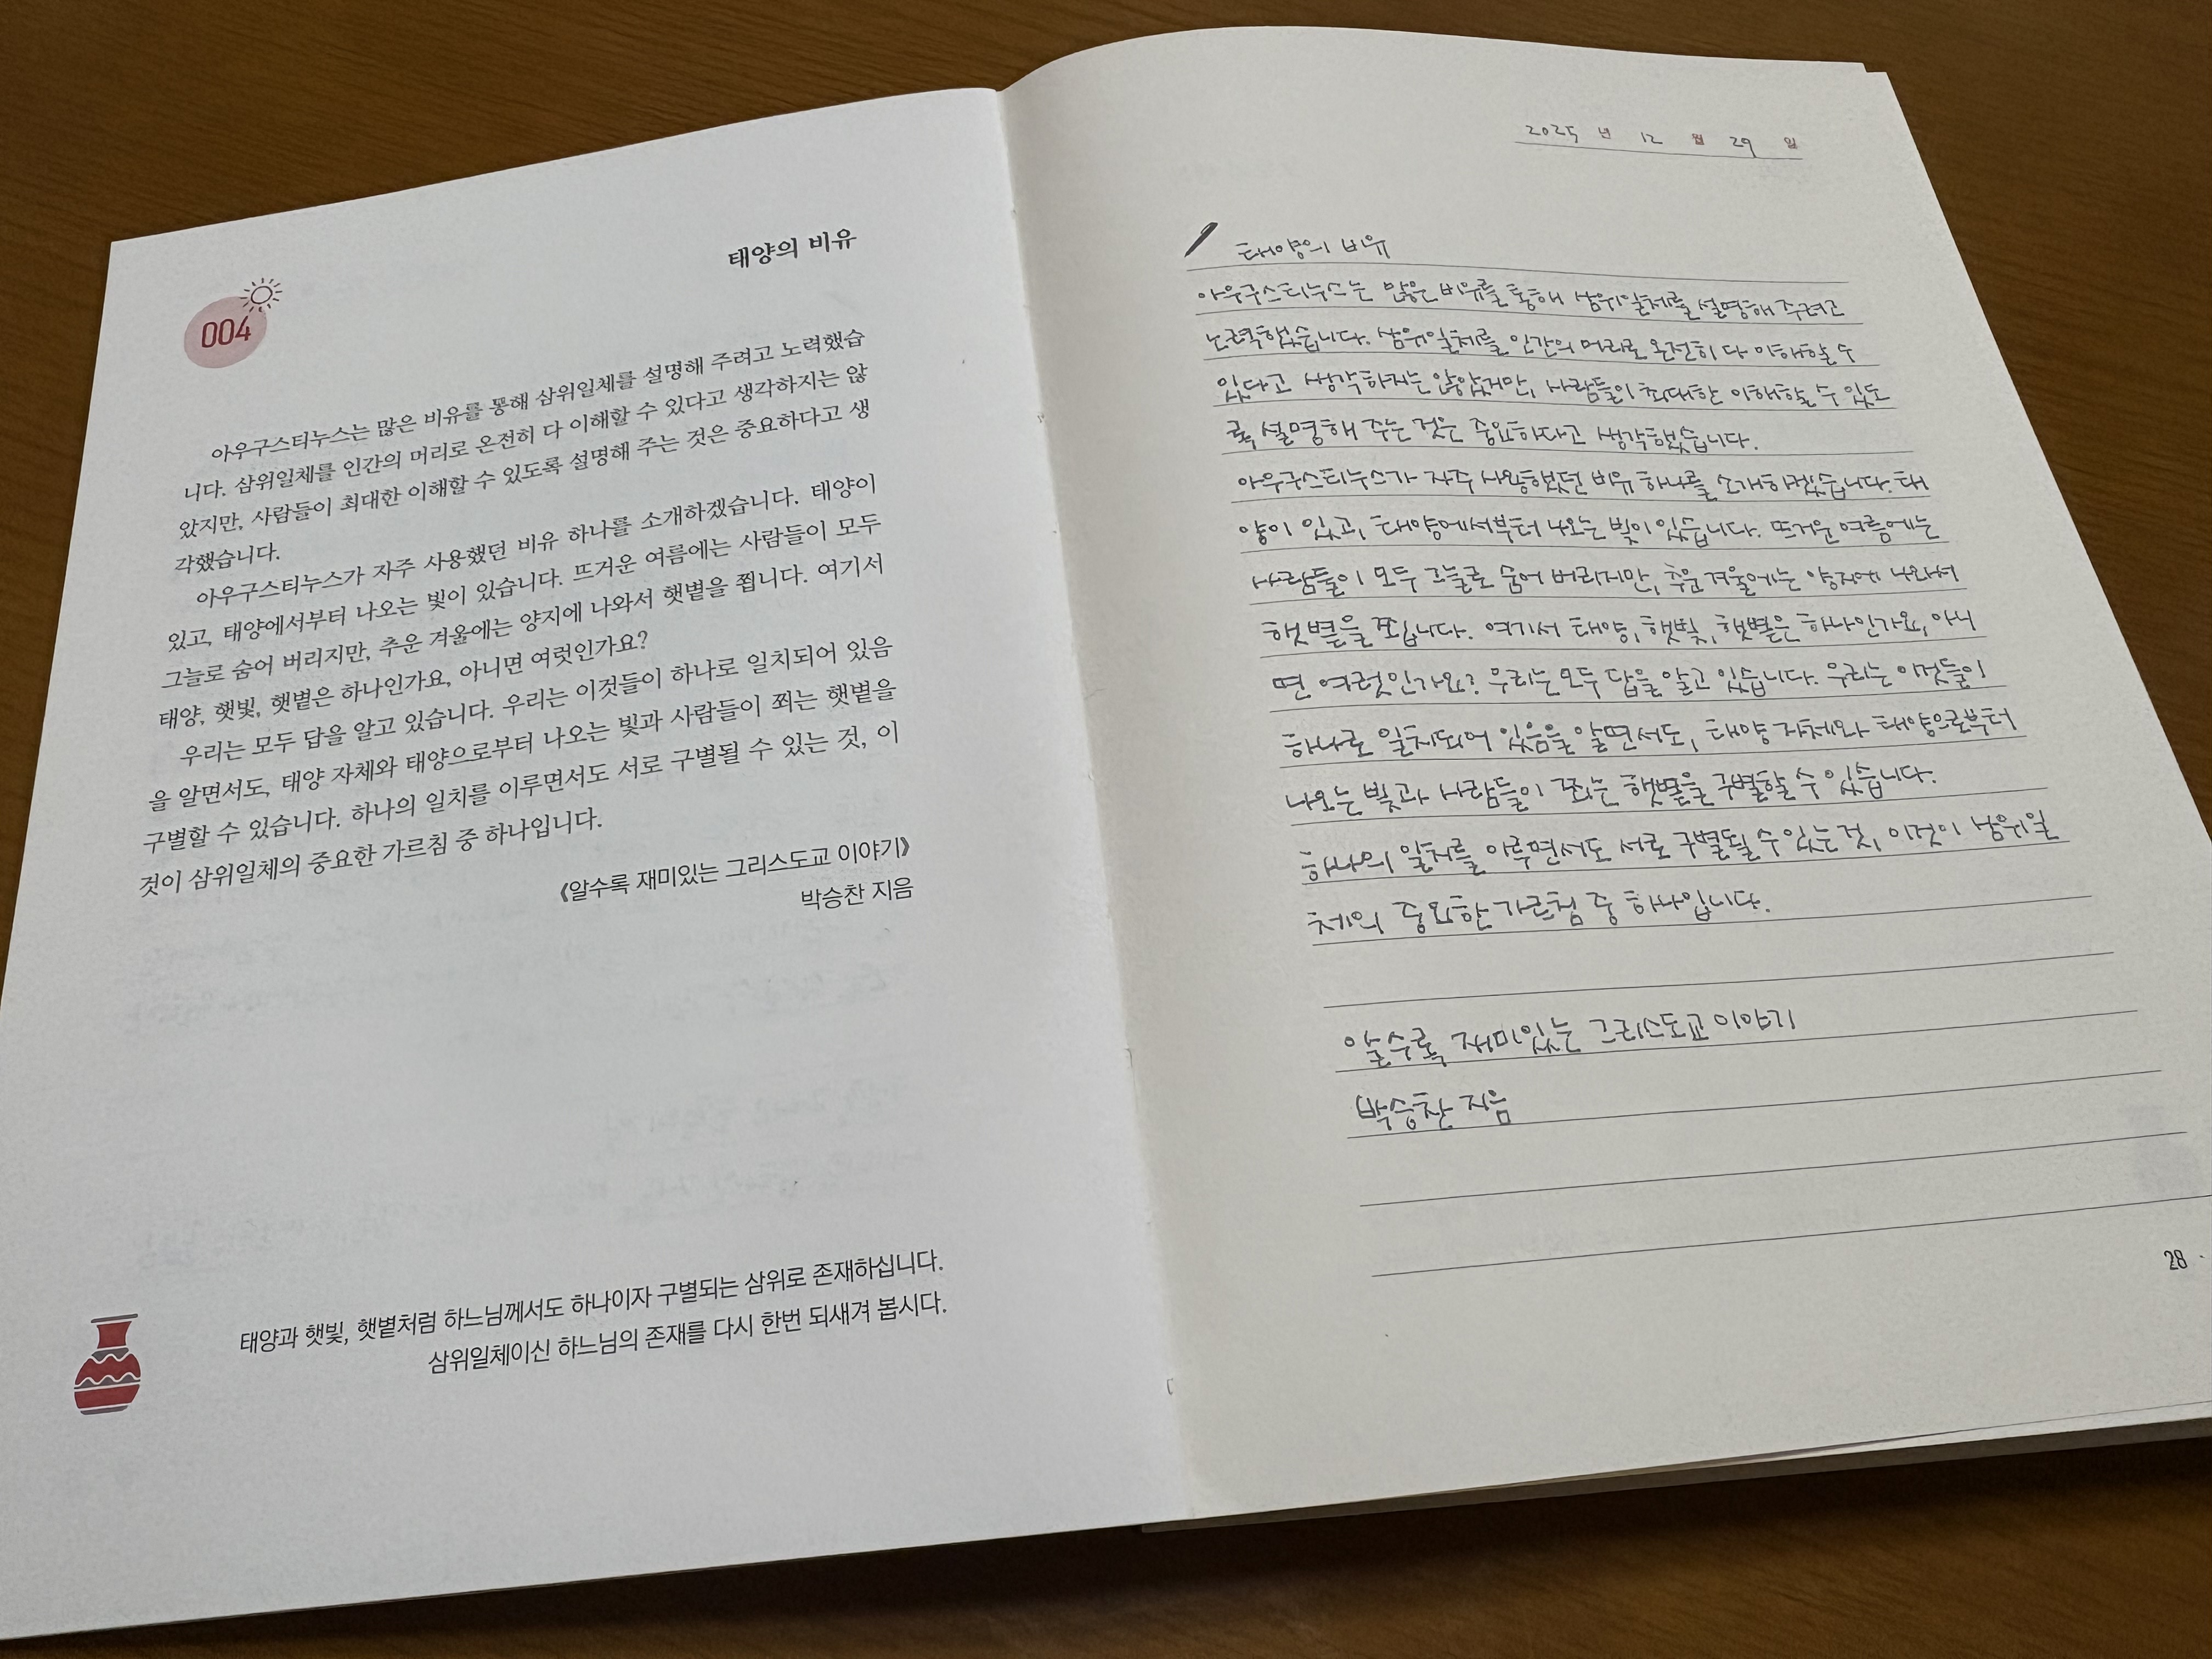 태양의 비유
004
아우구스티누스는 많은 비유를 통해 삼위일체를 설명해 주려고 노력했습
니다. 삼위일체를 인간의 머리로 온전히 다 이해할 수 있다고 생각하지는 않
았지만, 사람들이 최대한 이해할 수 있도록 설명해 주는 것은 중요하다고 생
각했습니다.
아우구스티누스가 자주 사용했던 비유 하나를 소개하겠습니다. 태양이
있고, 태양에서부터 나오는 빛이 있습니다. 뜨거운 여름에는 사람들이 모두
그늘로 숨어 버리지만, 추운 겨울에는 양지에 나와서 햇볕을 쬡니다. 여기서
태양, 햇빛, 햇볕은 하나인가요, 아니면 여럿인가요?
우리는 모두 답을 알고 있습니다. 우리는 이것들이 하나로 일치되어 있음
을 알면서도, 태양 자체와 태양으로부터 나오는 빛과 사람들이 쬐는 햇볕을
구별할 수 있습니다. 하나의 일치를 이루면서도 서로 구별될 수 있는 것, 이
것이 삼위일체의 중요한 가르침 중 하나입니다.
《알수록 재미있는 그리스도교 이야기》
박승찬 지음
태양과 햇빛, 햇볕처럼 하느님께서도 하나이자 구별되는 삼위로 존재하십니다.
삼위일체이신 하느님의 존재를 다시 한번 되새겨 봅시다.
2025 년 12 월 29 일
태양의 비유
아우구스티누스는 많은 비유를 통해 삼위일체를 설명해 주려고
노력했습니다. 삼위일체를 인간의 머리로 온전히 다 이해할 수
있다고 생각하지는 않았지만, 사람들이 최대한 이해할 수 있도
록 설명해 주는 것은 중요하다고 생각했습니다.
아우구스티누스가 자주 사용했던 비유 하나를 소개하겠습니다. 태
양이 있고, 태양에서부터 나오는 빛이 있습니다. 뜨거운 여름에는
사람들이 모두 그늘로 숨어 버리지만, 추운 겨울에는 양지에 나와서
햇볕을 쬡니다. 여기서 태양, 햇빛, 햇볕은 하나인가요, 아니
면 여럿인가요? 우리는 모두 답을 알고 있습니다. 우리는 이것들이
하나로 일치되어 있음을 알면서도, 태양 자체와 태양으로부터
나오는 빛과 사람들이 쬐는 햇볕을 구별할 수 있습니다.
하나의 일치를 이루면서도 서로 구별될 수 있는 것, 이것이 삼위일
체의 중요한 가르침 중 하나입니다.
알수록 재미있는 그리스도교 이야기
박승찬 지음
28